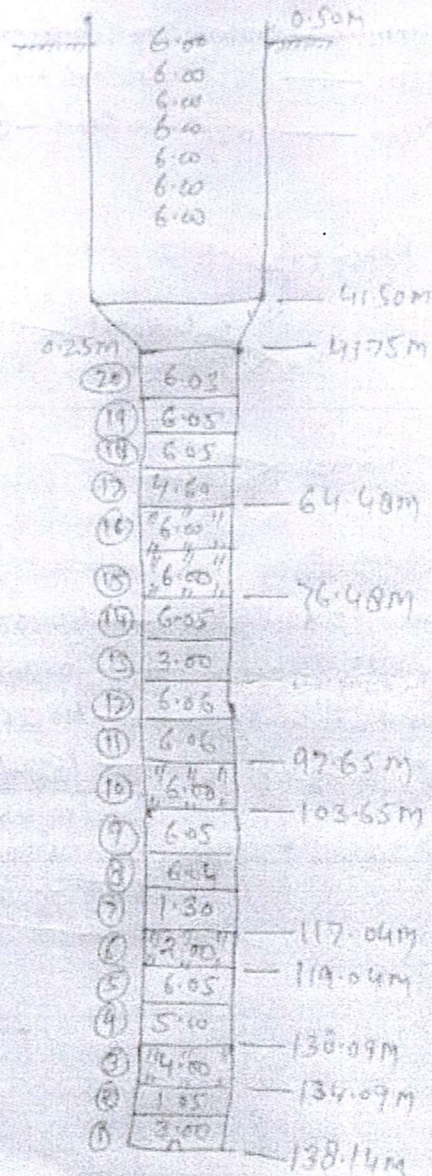 0.50M
6.00
6.00
6.00
6.00
6.00
6.00
6.00
41.50M
0.25M 41.75M
20 6.03
19 6.05
18 6.05
17 4.60
64.48M
16 "6.00"
15 "6.00"
76.48M
14 6.05
13 3.00
12 6.06
11 6.06
97.65M
10 "6.00"
103.65M
9 6.05
8 6.04
7 1.30
117.04M
6 "2.00"
119.04M
5 6.05
4 5.00
130.09M
3 "4.00"
134.09M
2 1.05
1 3.00
138.14M